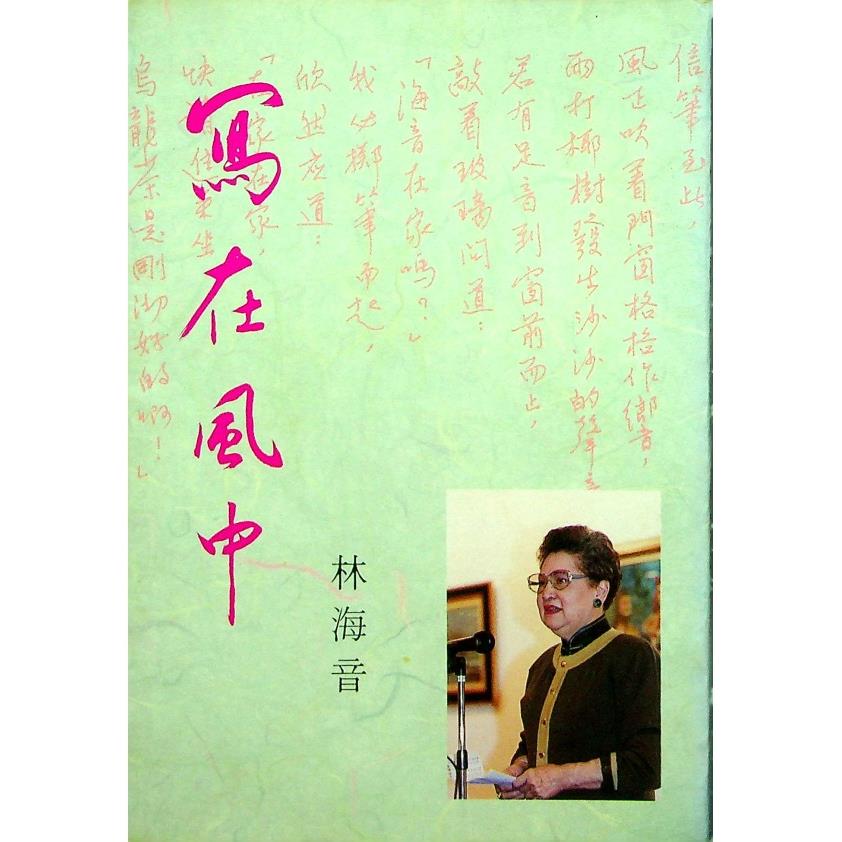 寫在風中
林海音
信筆至此，
風正吹着門窗格格作響，
雨打椰樹發出沙沙的聲
若有足音到窗前而止，
敲着玻璃問道：
「海音在家嗎？」
我必擲筆而起，
欣然应道：
「在家在家，
快請進來坐
烏龍茶是剛沏好的啊！」